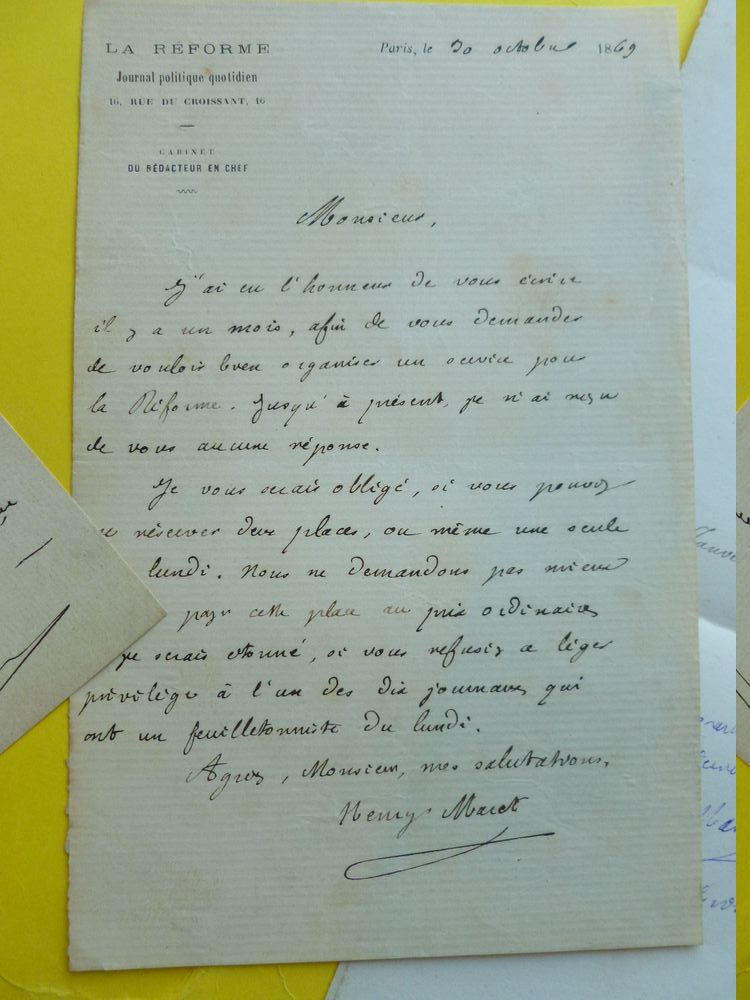 LA RÉFORME
Journal politique quotidien
16, RUE DU CROISSANT, 16
CABINET
DU RÉDACTEUR EN CHEF
Paris, le 30 octobre 1869
Monsieur,
J'ai eu l'honneur de vous écrire
il y a un mois, afin de vous demander
de vouloir bien organiser un service pour
la Réforme. Jusqu'à présent, je n'ai reçu
de vous aucune réponse.
Je vous serais obligé, si vous pouvez
réserver deux places, ou même une seule
lundi. Nous ne demandons pas mieux
payer cette place au prix ordinaire,
je serais étonné, si vous refusiez ce léger
privilège à l'un des dix journaux qui
ont un feuilletonniste du lundi.
Agréez, Monsieur, mes salutations,
Henry Maret